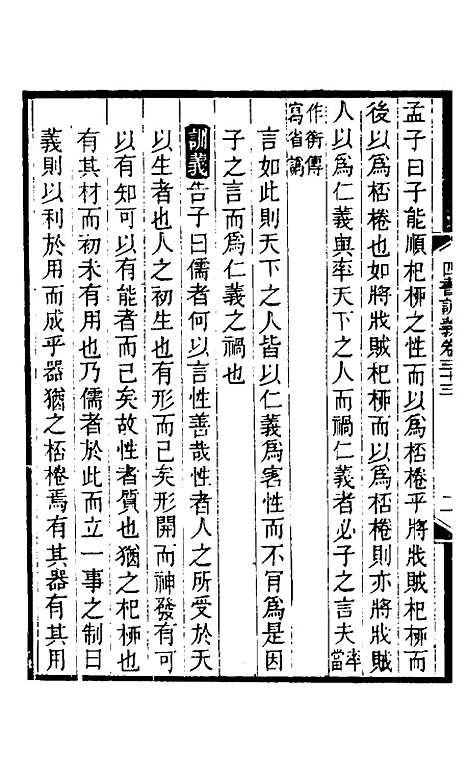 孟子曰子能順杞柳之性而以爲桮棬乎將戕賊杞柳而
後以爲桮棬也如將戕賊杞柳而以爲桮棬則亦將戕賊
人以爲仁義與率天下之人而禍仁義者必子之言夫率當
作衡傳
寫省譌
言如此則天下之人皆以仁義爲害性而不肎爲是因
子之言而爲仁義之禍也
訓義告子曰儒者何以言性善哉性者人之所受於天
以生者也人之初生也有形而已矣形開而神發有可
以有知可以有能者而已矣故性者質也猶之杞柳也
有其材而初未有用也乃儒者於此而立一事之制曰
義則以利於用而成乎器猶之桮棬焉有其器有其用
四書訓義卷三十三